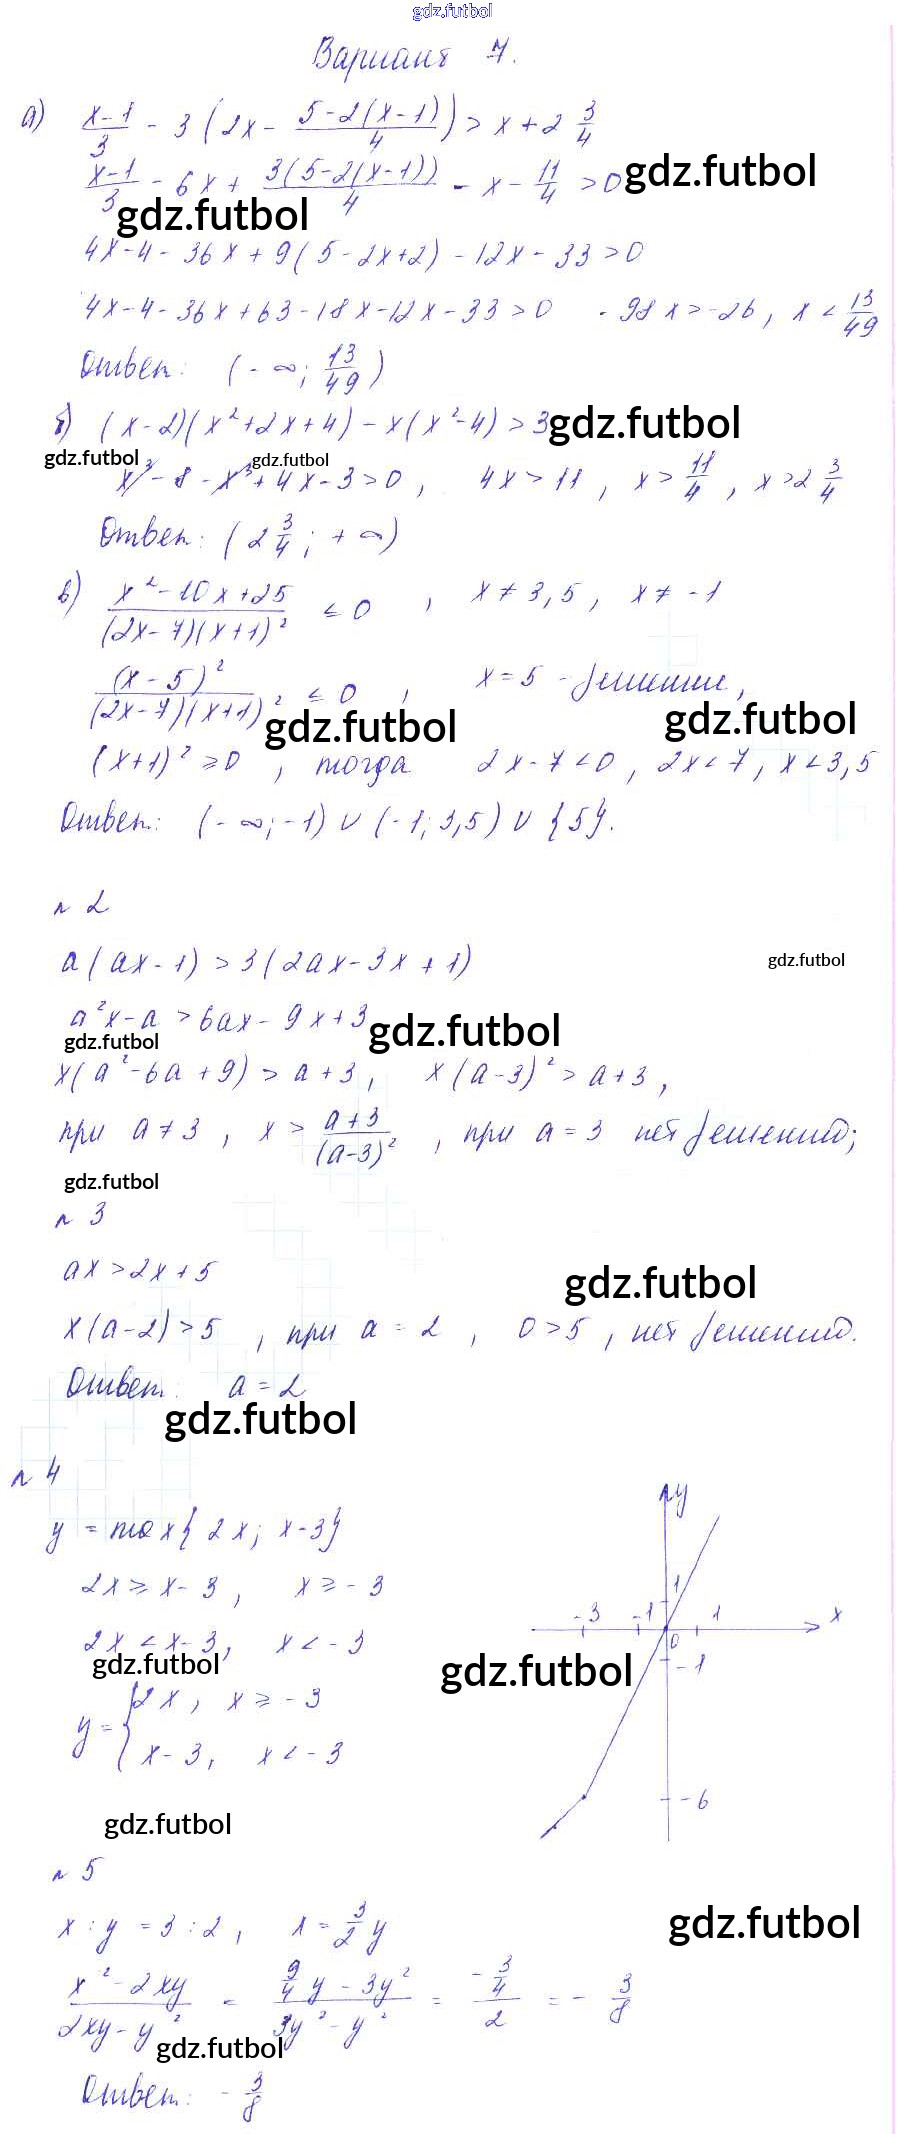 gdz.futbol
Вариант 7.
а) (x-1)/3 - 3(2x - (5-2(x-1))/4) > x + 2 3/4
(x-1)/3 - 6x + 3(5-2(x-1))/4 - x - 11/4 > 0 gdz.futbol
gdz.futbol
4x-4-36x+9(5-2x+2)-12x-33>0
4x-4-36x+63-18x-12x-33>0 -98x>-26, x<13/49
Ответ: (-∞; 13/49)
б) (x-2)(x²+2x+4)-x(x²-4)>3 gdz.futbol
gdz.futbol gdz.futbol
x³-8-x³+4x-3>0, 4x>11, x>11/4, x>2 3/4
Ответ: (2 3/4; +∞)
в) (x²-10x+25)/((2x-7)(x+1)²) ≤ 0, x≠3,5, x≠-1
(x-5)²/((2x-7)(x+1)²) ≤ 0, x=5 - решение,
gdz.futbol gdz.futbol
(x+1)²≥0, тогда 2x-7<0, 2x<7, x<3,5
Ответ: (-∞;-1)∪(-1;3,5)∪{5}.
n 2
a(ax-1)>3(2ax-3x+1)
gdz.futbol
a²x-a>6ax-9x+3 gdz.futbol
gdz.futbol
x(a²-6a+9)>a+3, x(a-3)²>a+3,
при a≠3, x>(a+3)/(a-3)², при a=3 нет решений;
gdz.futbol
n 3
ax>2x+5
gdz.futbol
x(a-2)>5, при a=2, 0>5, нет решений.
Ответ: a=2
gdz.futbol
n 4
y
y=max{2x; x-3}
2x≥x-3, x≥-3
1
-3 -1 1 x
0
2x<x-3, x<-3
gdz.futbol gdz.futbol -1
y={2x, x≥-3
x-3, x<-3
-6
gdz.futbol
n 5
x:y=3:2, x=3/2 y gdz.futbol
(x²-2xy)/(2xy-y²) = (9/4 y-3y²)/(3y²-y²) = (-3/4)/2 = -3/8
gdz.futbol
Ответ: -3/8